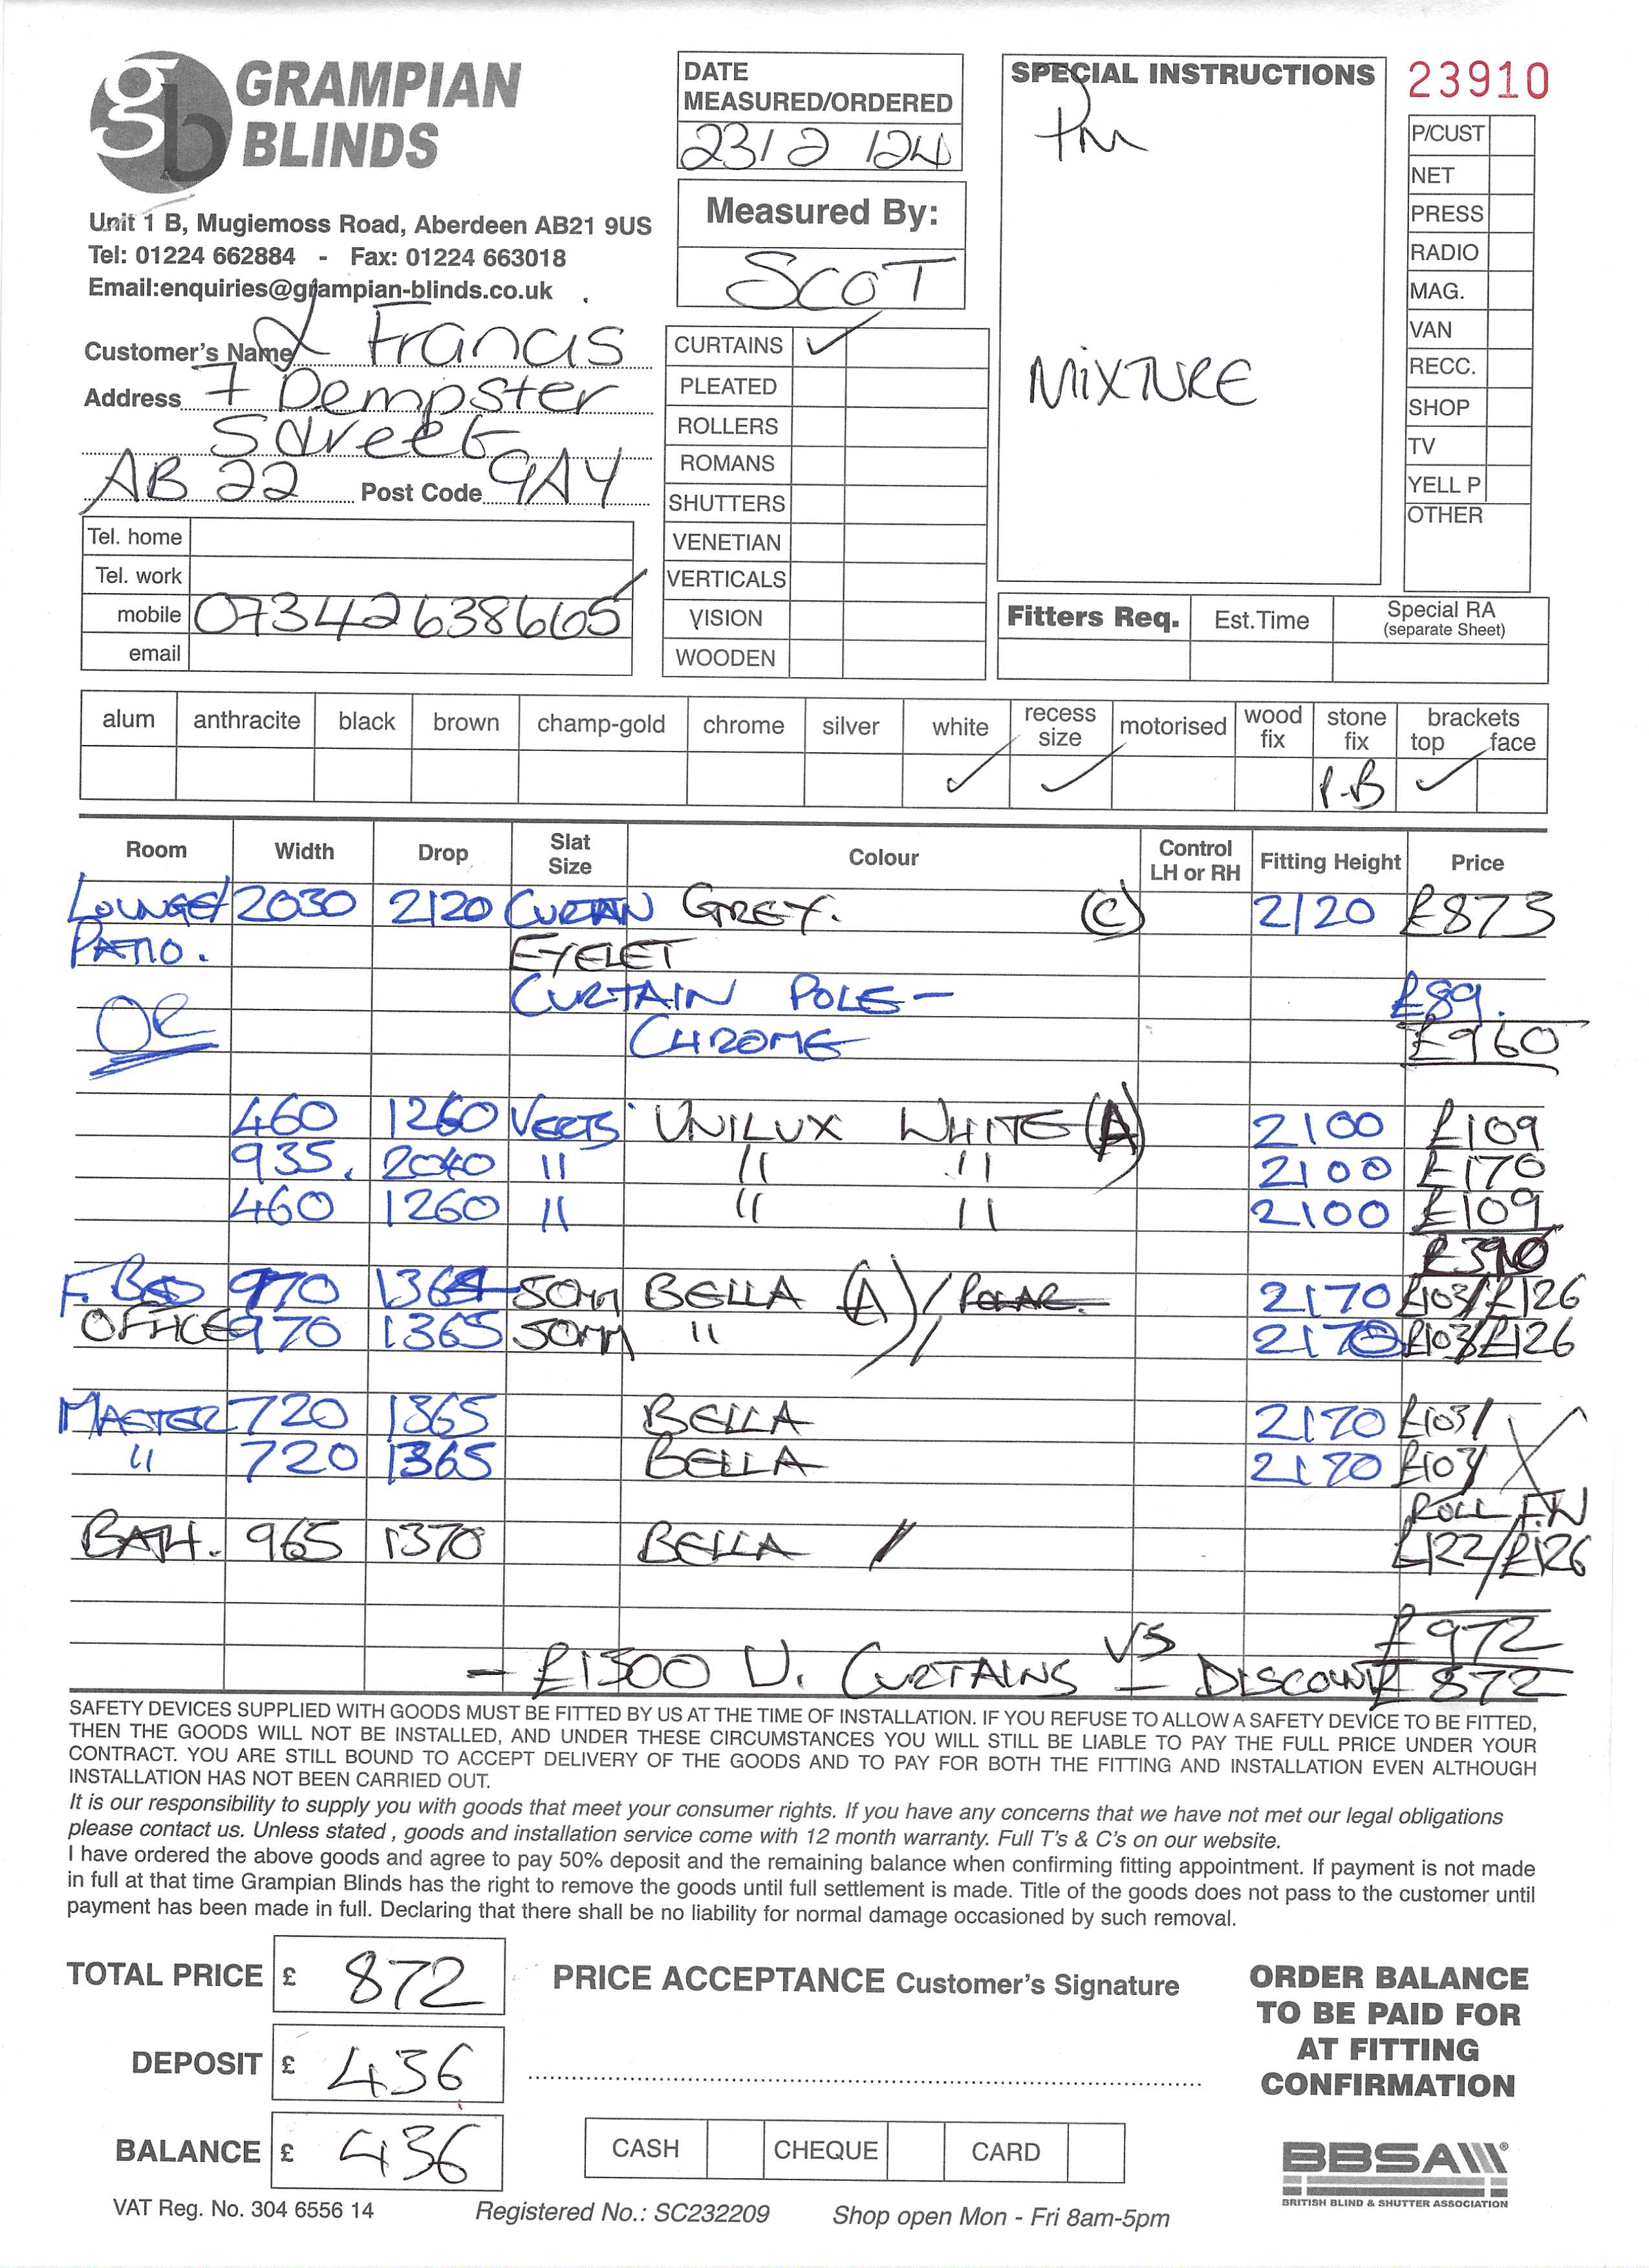 GRAMPIAN
BLINDS
Unit 1 B, Mugiemoss Road, Aberdeen AB21 9US
Tel: 01224 662884 - Fax: 01224 663018
Email:enquiries@grampian-blinds.co.uk
Customer's Name L Francis
Address 7 Dempster
Street
AB 22 Post Code 9AY
Tel. home
Tel. work
mobile 07342638665
email
DATE
MEASURED/ORDERED
23/2/24
Measured By:
SCOT
CURTAINS ✓
PLEATED
ROLLERS
ROMANS
SHUTTERS
VENETIAN
VERTICALS
VISION
WOODEN
SPECIAL INSTRUCTIONS
PM
MIXTURE
23910
P/CUST
NET
PRESS
RADIO
MAG.
VAN
RECC.
SHOP
TV
YELL P
OTHER
Fitters Req. Est.Time Special RA
(separate Sheet)
alum anthracite black brown champ-gold chrome silver white recess size motorised wood fix stone fix brackets top face
✓ ✓ P.B ✓
Room Width Drop Slat Size Colour Control LH or RH Fitting Height Price
LOUNGE/ 2030 2120 CURTAIN GREY. (C) 2120 £873
PATIO. EYELET
CURTAIN POLE - £89.
OR CHROME £960
460 1260 VERTS UNILUX WHITE (A) 2100 £109
935. 2040 " " " 2100 £170
460 1260 " " " 2100 £109
£390
F. BED 970 1364 50mm BELLA (A) / POLAR 2170 £103/£126
OFFICE 970 1365 50mm " / 2170 £103/£126
MASTER 720 1365 BELLA 2170 £103/
" 720 1365 BELLA 2170 £103/
ROLL F.W
BATH. 965 1370 BELLA / £122/£126
£972
- £1300 V. CURTAINS VS - DISCOUNT £872
SAFETY DEVICES SUPPLIED WITH GOODS MUST BE FITTED BY US AT THE TIME OF INSTALLATION. IF YOU REFUSE TO ALLOW A SAFETY DEVICE TO BE FITTED,
THEN THE GOODS WILL NOT BE INSTALLED, AND UNDER THESE CIRCUMSTANCES YOU WILL STILL BE LIABLE TO PAY THE FULL PRICE UNDER YOUR
CONTRACT. YOU ARE STILL BOUND TO ACCEPT DELIVERY OF THE GOODS AND TO PAY FOR BOTH THE FITTING AND INSTALLATION EVEN ALTHOUGH
INSTALLATION HAS NOT BEEN CARRIED OUT.
It is our responsibility to supply you with goods that meet your consumer rights. If you have any concerns that we have not met our legal obligations
please contact us. Unless stated , goods and installation service come with 12 month warranty. Full T's & C's on our website.
I have ordered the above goods and agree to pay 50% deposit and the remaining balance when confirming fitting appointment. If payment is not made
in full at that time Grampian Blinds has the right to remove the goods until full settlement is made. Title of the goods does not pass to the customer until
payment has been made in full. Declaring that there shall be no liability for normal damage occasioned by such removal.
TOTAL PRICE £ 872
DEPOSIT £ 436
BALANCE £ 436
PRICE ACCEPTANCE Customer's Signature
CASH CHEQUE CARD
ORDER BALANCE
TO BE PAID FOR
AT FITTING
CONFIRMATION
BBSA
BRITISH BLIND & SHUTTER ASSOCIATION
VAT Reg. No. 304 6556 14 Registered No.: SC232209 Shop open Mon - Fri 8am-5pm